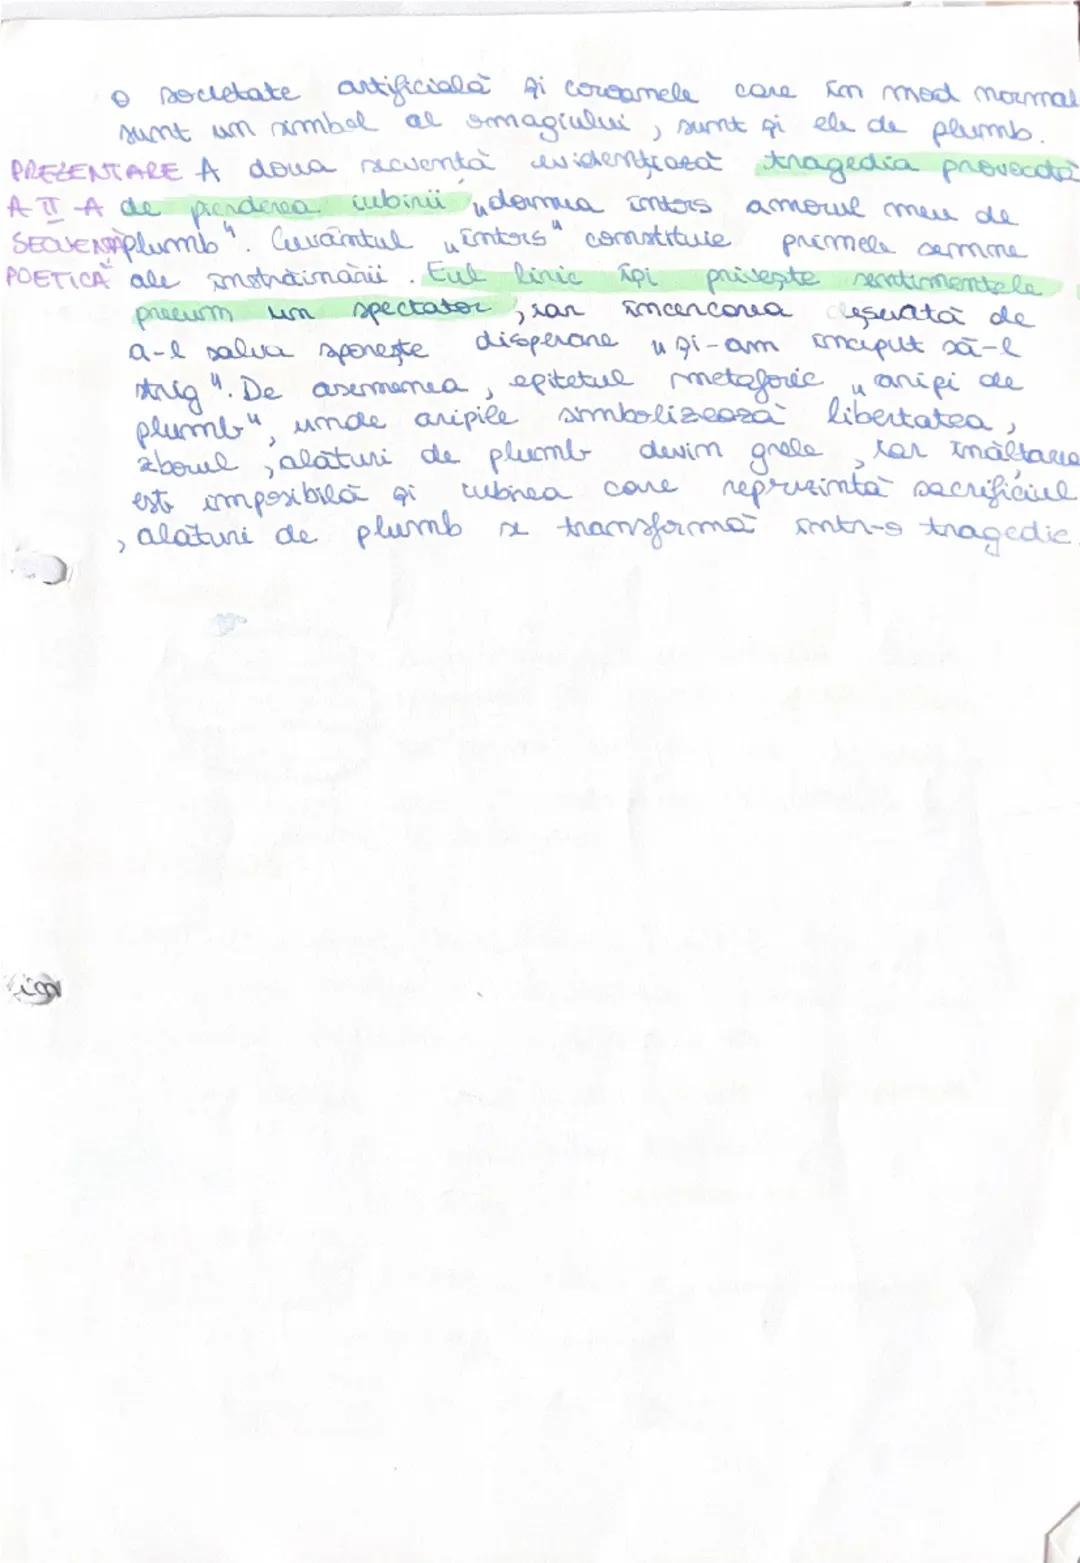 o societate artificială și coroanele care în mod normal
sunt un simbol al omagiului, sunt și ele de plumb.
PREZENTARE A doua secvență evidențiază tragedia provocată
A II-A de pierderea iubirii „dormea întors amorul meu de
SECVENȚĂ plumb". Cuvântul „întors" constituie primele semne
POETICĂ ale înstrăinării. Eul liric își privește sentimentele
precum un spectator, iar încercarea eșuată de
a-l salva sporește disperare „și-am început să-l
strig". De asemenea, epitetul metaforic „aripi de
plumb", unde aripile simbolizează libertatea,
zborul, alături de plumb devin grele, iar înălțarea
este imposibilă și iubirea care reprezintă sacrificiul
, alături de plumb se transformă într-o tragedie.